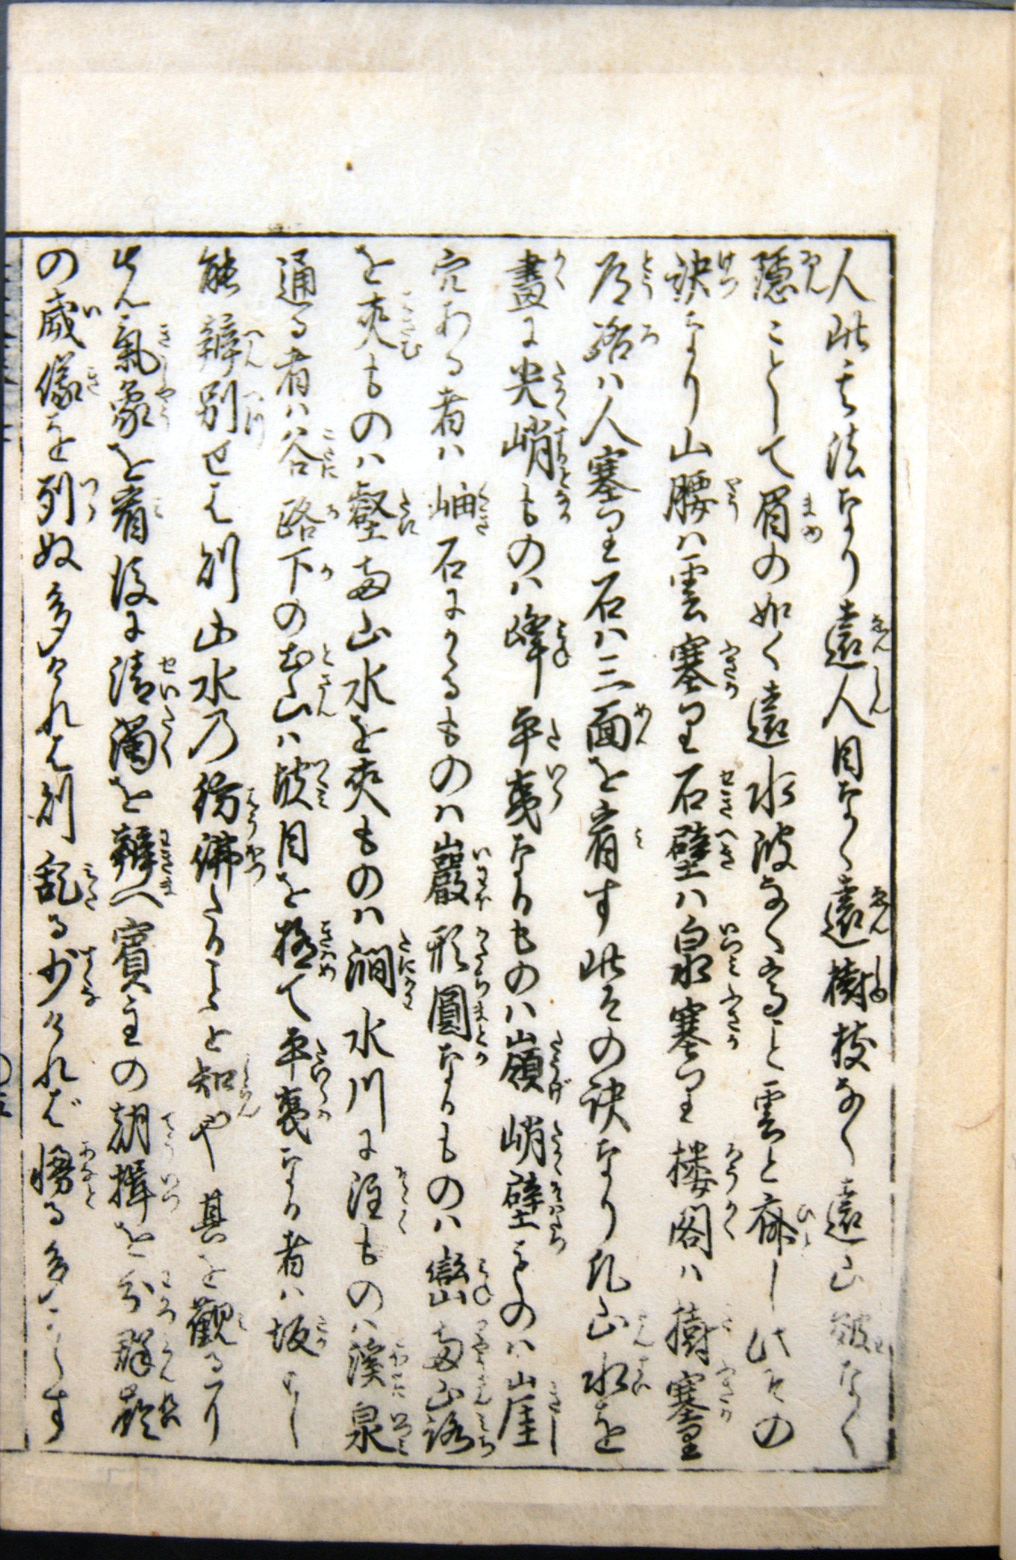 人此其法なり遠人目なく遠樹枝なく遠山皴なく
隠ことして眉の如く遠水波なく高こと雲と齊し此その
訣なり山腰ハ雲塞り石壁ハ泉塞り楼閣ハ樹塞り
道路ハ人塞り石ハ三面を看す此その訣なり凡山水を
畫に尖峭ものハ峰平夷なるものハ嶺峭壁ものハ崖
穴ある者ハ岫石にかゝるものハ巖形圓なるものハ巒両山路
を夾ものハ壑両山水を夾ものハ澗水川に注ものハ溪泉
通る者ハ谷路下の土山ハ坡目を極て平夷なる者ハ坂よし
能辨別せば則山水乃髣彿たることを知や其を觀るに
先氣象を看後に清濁を辨へ賓主の朝揖を分群峯
の威儀を列ぬ多ければ則乱る少けれバ慢る多からす